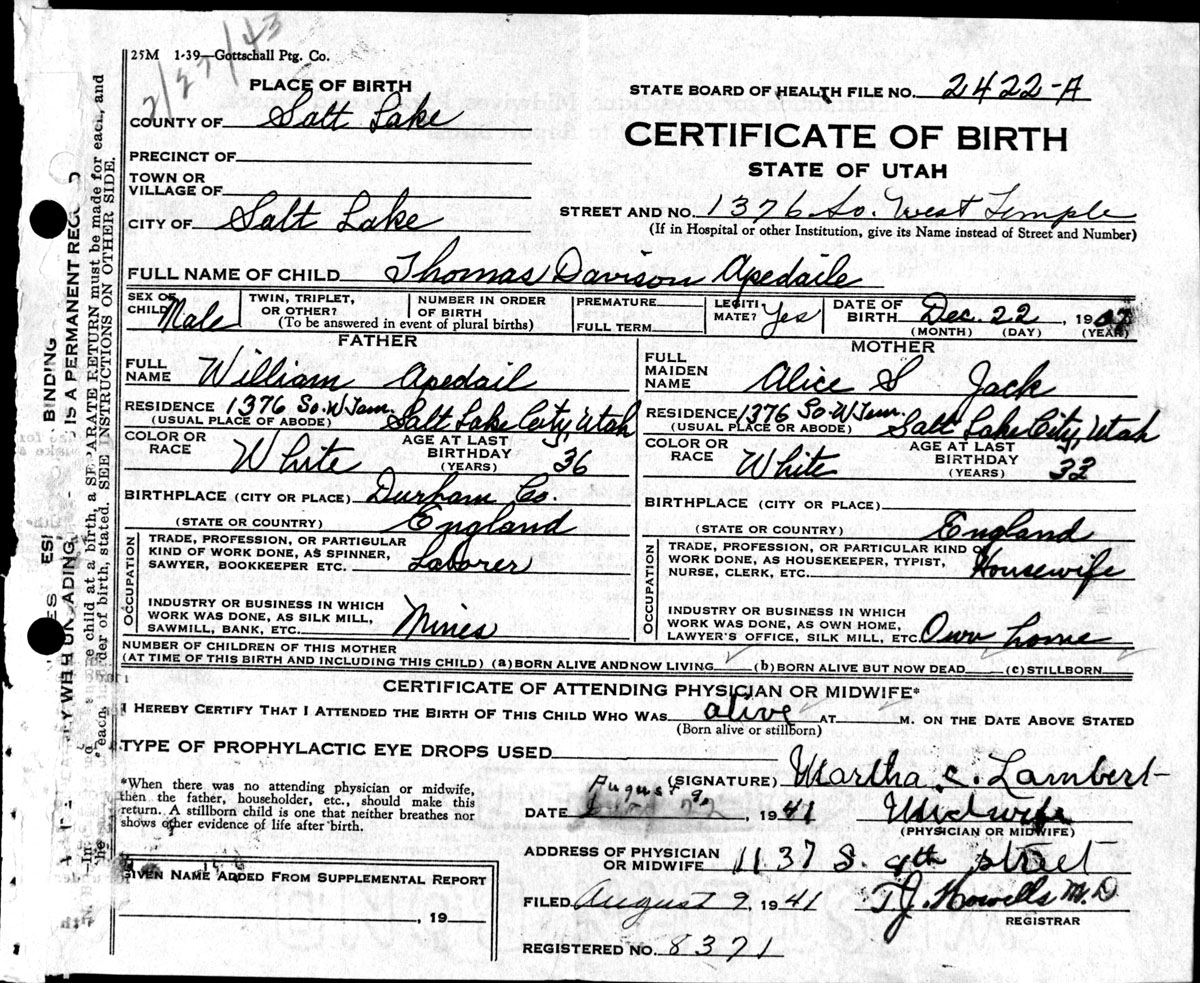 25M 1-39—Gottschall Ptg. Co.
2/27/43
PLACE OF BIRTH
COUNTY OF Salt Lake
PRECINCT OF
TOWN OR
VILLAGE OF
CITY OF Salt Lake
STATE BOARD OF HEALTH FILE NO. 2422-A
CERTIFICATE OF BIRTH
STATE OF UTAH
STREET AND NO. 1376 So. West Temple
(If in Hospital or other Institution, give its Name instead of Street and Number)
FULL NAME OF CHILD Thomas Davison Apedaile
SEX OF
CHILD Male
TWIN, TRIPLET,
OR OTHER?
NUMBER IN ORDER
OF BIRTH
(To be answered in event of plural births)
PREMATURE
FULL TERM
LEGITI
MATE? Yes
DATE OF
BIRTH Dec. 22, 1907
(MONTH) (DAY) (YEAR)
FATHER
FULL
NAME William Apedail
RESIDENCE 1376 So. W Tem. Salt Lake City, Utah
(USUAL PLACE OF ABODE)
COLOR OR
RACE White
AGE AT LAST
BIRTHDAY 36
(YEARS)
BIRTHPLACE (CITY OR PLACE) Durham Co.
(STATE OR COUNTRY) England
OCCUPATION
TRADE, PROFESSION, OR PARTICULAR
KIND OF WORK DONE, AS SPINNER,
SAWYER, BOOKKEEPER ETC. Laborer
INDUSTRY OR BUSINESS IN WHICH
WORK WAS DONE, AS SILK MILL,
SAWMILL, BANK, ETC. Mines
MOTHER
FULL
MAIDEN
NAME Alice S Jack
RESIDENCE 1376 So. W Tem. Salt Lake City, Utah
(USUAL PLACE OF ABODE)
COLOR OR
RACE White
AGE AT LAST
BIRTHDAY 32
(YEARS)
BIRTHPLACE (CITY OR PLACE)
(STATE OR COUNTRY) England
OCCUPATION
TRADE, PROFESSION, OR PARTICULAR KIND OF
WORK DONE, AS HOUSEKEEPER, TYPIST,
NURSE, CLERK, ETC. Housewife
INDUSTRY OR BUSINESS IN WHICH
WORK WAS DONE, AS OWN HOME,
LAWYER'S OFFICE, SILK MILL, ETC. Own home
NUMBER OF CHILDREN OF THIS MOTHER
(AT TIME OF THIS BIRTH AND INCLUDING THIS CHILD) (a) BORN ALIVE AND NOW LIVING (b) BORN ALIVE BUT NOW DEAD (c) STILLBORN
CERTIFICATE OF ATTENDING PHYSICIAN OR MIDWIFE*
I HEREBY CERTIFY THAT I ATTENDED THE BIRTH OF THIS CHILD WHO WAS alive AT M. ON THE DATE ABOVE STATED
(Born alive or stillborn)
TYPE OF PROPHYLACTIC EYE DROPS USED
*When there was no attending physician or midwife,
then the father, householder, etc., should make this
return. A stillborn child is one that neither breathes nor
shows other evidence of life after birth.
(SIGNATURE) Martha C. Lambert
DATE August, 1941 Midwife
(PHYSICIAN OR MIDWIFE)
ADDRESS OF PHYSICIAN
OR MIDWIFE 1137 S. 4th street
GIVEN NAME ADDED FROM SUPPLEMENTAL REPORT
, 19
FILED August 9, 1941 T.J. Howells M.D
REGISTRAR
REGISTERED NO. 8371
BINDING
IS A PERMANENT
child at a birth, a SEPARATE RETURN must be made for each, and
of birth, stated. SEE INSTRUCTIONS ON OTHER SIDE.